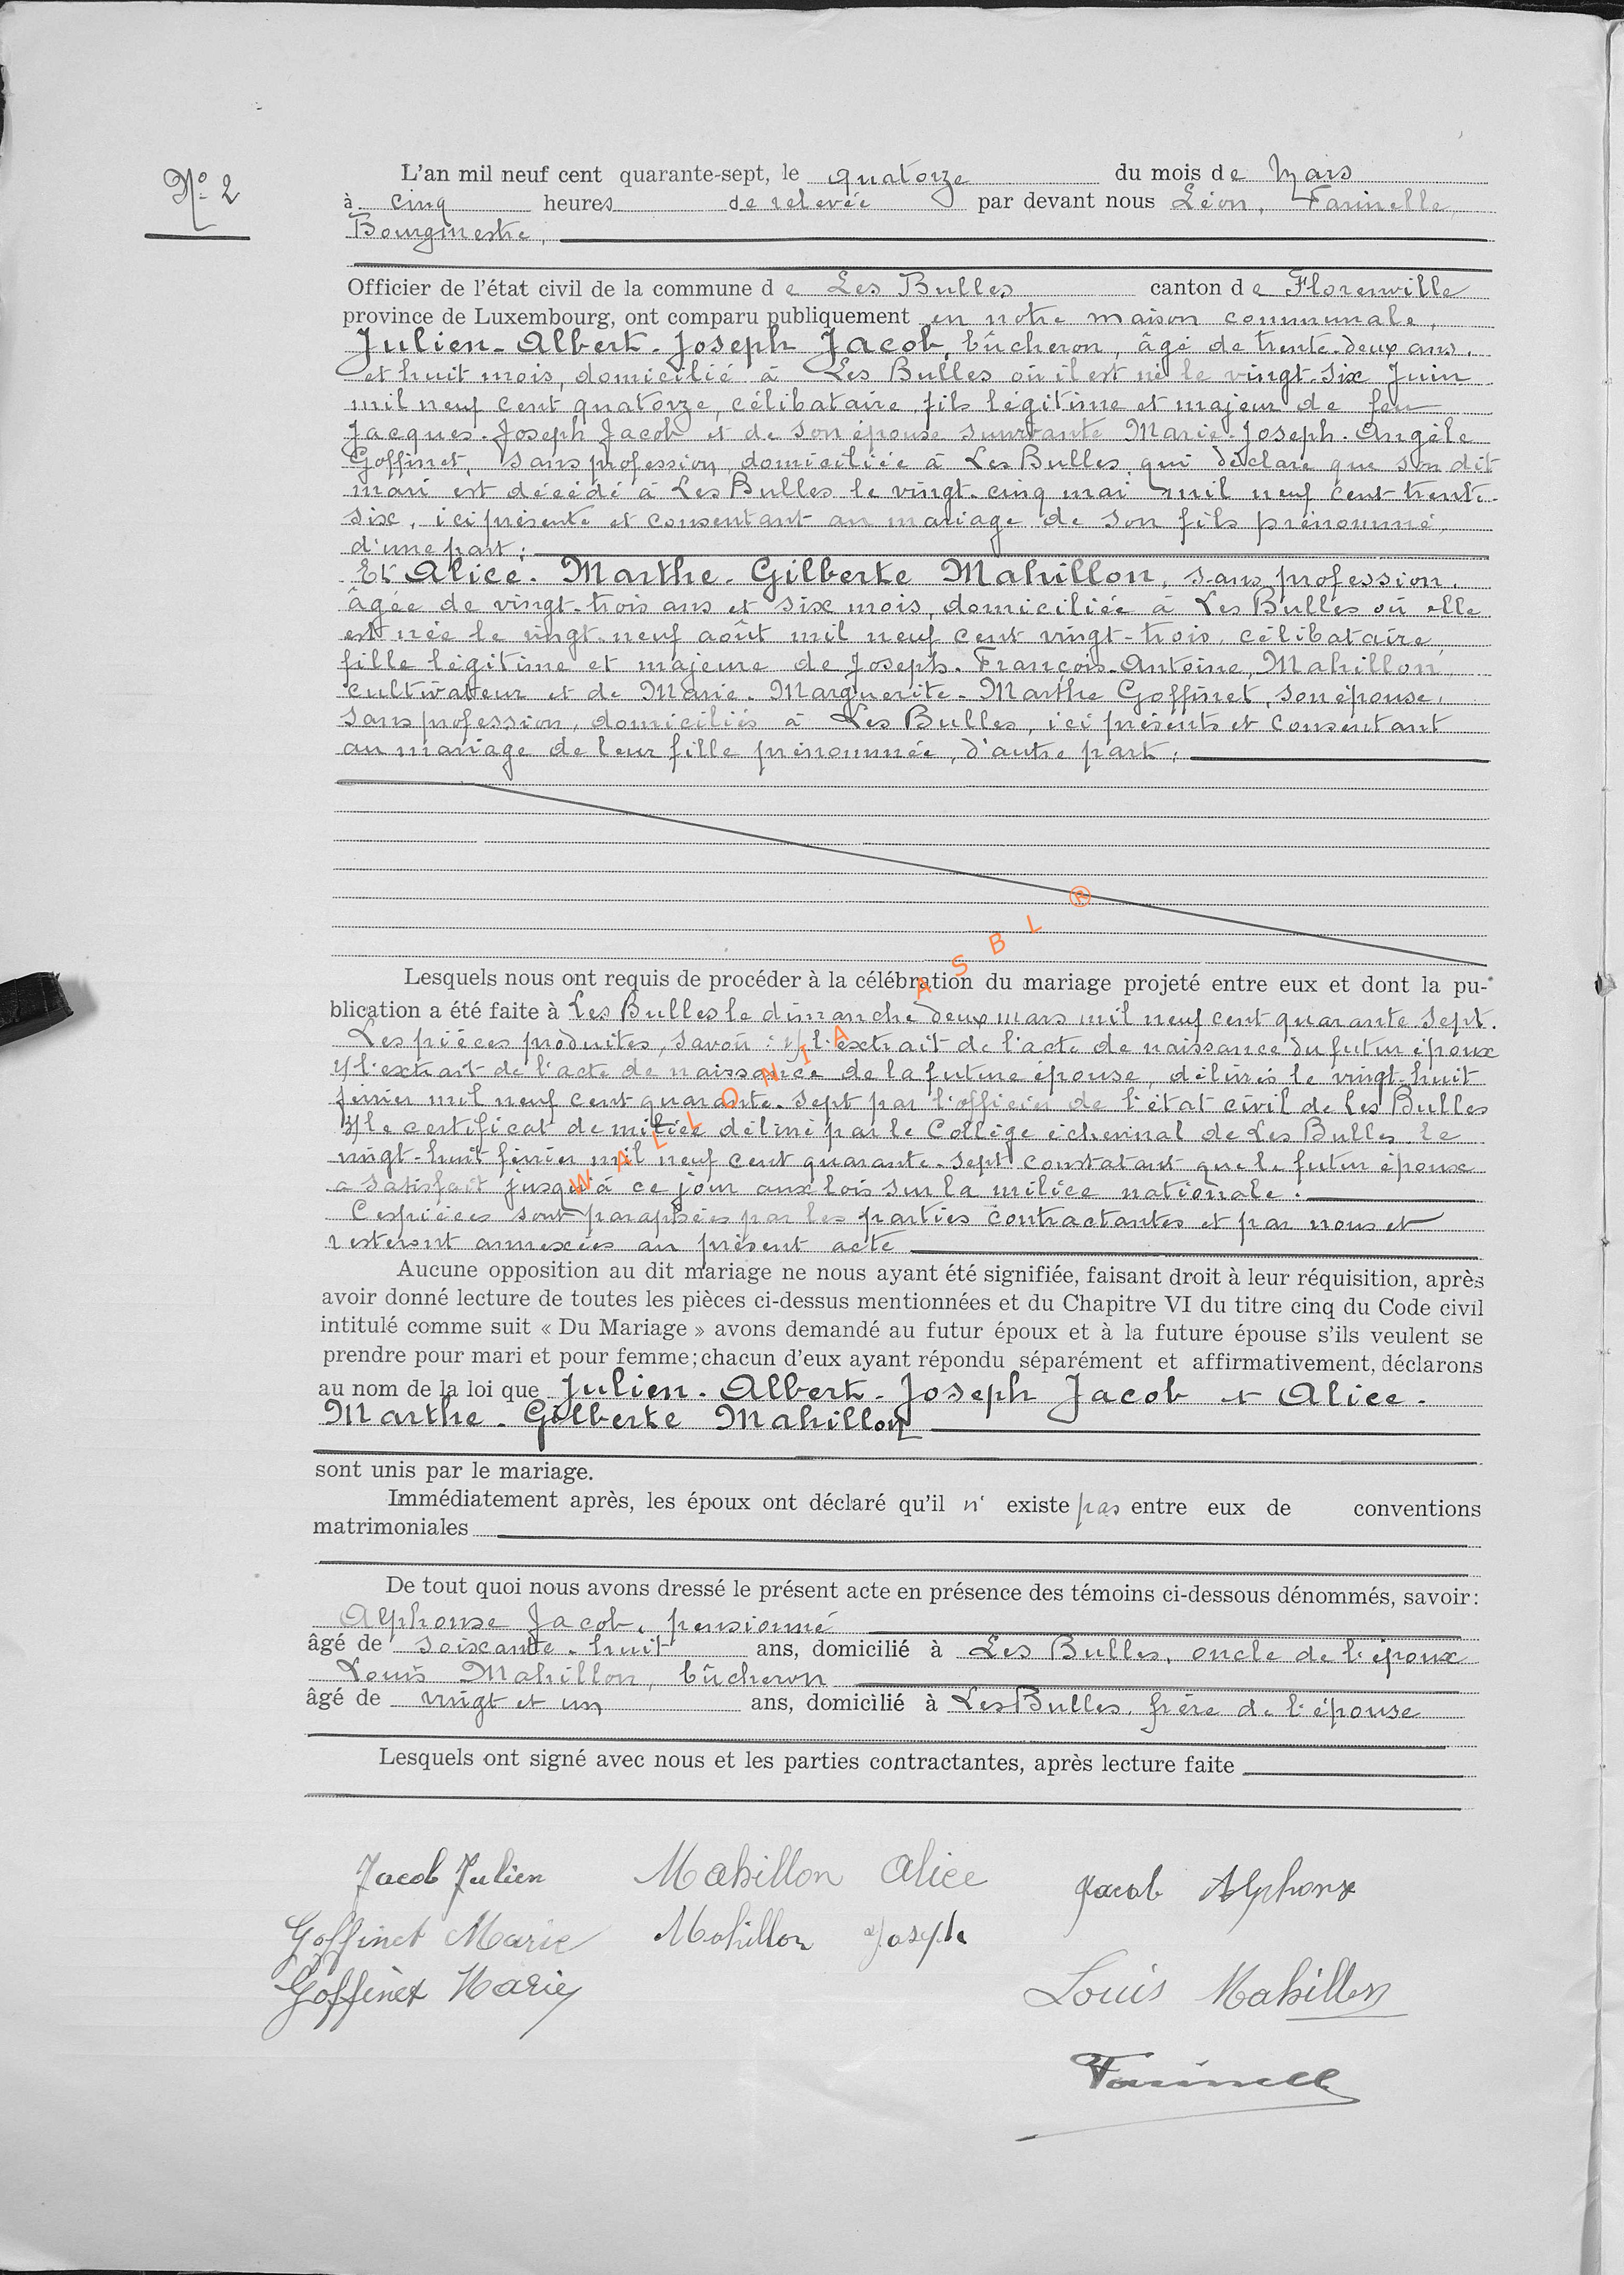 N° 2
L'an mil neuf cent quarante-sept, le quatorze du mois de Mars
à cinq heures de relevée par devant nous Léon, Farinelle,
Bourgmestre,
Officier de l'état civil de la commune de Les Bulles canton de Florenville
province de Luxembourg, ont comparu publiquement en notre maison communale,
Julien-Albert-Joseph Jacob, bûcheron, âgé de trente-deux ans,
et huit mois, domicilié à Les Bulles où il est né le vingt-six Juin
mil neuf cent quatorze, célibataire, fils légitime et majeur de feu
Jacques-Joseph Jacob et de son épouse survivante Marie-Joseph-Angèle
Goffinet, sans profession, domiciliée à Les Bulles, qui déclare que son dit
mari est décédé à Les Bulles le vingt-cinq mai mil neuf cent trente-
six, ici présente et consentant au mariage de son fils prénommé,
d'une part;
Et Alice-Marthe-Gilberte Mahillon, sans profession,
âgée de vingt-trois ans et six mois, domiciliée à Les Bulles où elle
est née le vingt-neuf août mil neuf cent vingt-trois, célibataire,
fille légitime et majeure de Joseph-François-Antoine, Mahillon,
cultivateur et de Marie-Marguerite-Marthe Goffinet, son épouse,
sans profession, domiciliés à Les Bulles, ici présents et consentant
au mariage de leur fille prénommée, d'autre part;
Lesquels nous ont requis de procéder à la célébration du mariage projeté entre eux et dont la pu-
blication a été faite à Les Bulles le dimanche deux mars mil neuf cent quarante-sept.
Les pièces produites, savoir : 1/ l'extrait de l'acte de naissance du futur époux
2/ l'extrait de l'acte de naissance de la future épouse, délivrés le vingt-huit
février mil neuf cent quarante-sept par l'officier de l'état civil de Les Bulles
3/ le certificat de milice délivré par le Collège échevinal de Les Bulles le
vingt-huit février mil neuf cent quarante-sept constatant que le futur époux
a satisfait jusqu'à ce jour aux lois sur la milice nationale.
Ces pièces sont paraphées par les parties contractantes et par nous et
resteront annexées au présent acte
WALLONIA ASBL ®
Aucune opposition au dit mariage ne nous ayant été signifiée, faisant droit à leur réquisition, après
avoir donné lecture de toutes les pièces ci-dessus mentionnées et du Chapitre VI du titre cinq du Code civil
intitulé comme suit « Du Mariage » avons demandé au futur époux et à la future épouse s'ils veulent se
prendre pour mari et pour femme; chacun d'eux ayant répondu séparément et affirmativement, déclarons
au nom de la loi que Julien-Albert-Joseph Jacob et Alice-
Marthe-Gilberte Mahillon
sont unis par le mariage.
Immédiatement après, les époux ont déclaré qu'il n' existe pas entre eux de conventions
matrimoniales
De tout quoi nous avons dressé le présent acte en présence des témoins ci-dessous dénommés, savoir:
Alphonse Jacob, pensionné
âgé de soixante-huit ans, domicilié à Les Bulles, oncle de l'époux
Louis Mahillon, bûcheron
âgé de vingt et un ans, domicilié à Les Bulles, frère de l'épouse
Lesquels ont signé avec nous et les parties contractantes, après lecture faite
Jacob Julien Mahillon Alice Jacob Alphonse
Goffinet Marie Mahillon Joseph
Goffinet Marie Louis Mahillon
Farinelle